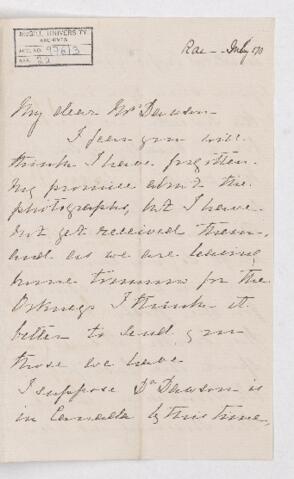 McGILL UNIVERSITY
ARCHIVES
ACC. NO. 976/3
REF. 22
Rae - July /70
My dear Mrs Dawson
I fear you will
think I have forgotten
my promise about the
photographs, but I have
not yet received them,
and as we are leaving
home tomorrow for the
Orkneys I think it
better to send you
those we have.
I suppose Dr Dawson is
in Canada by this time,